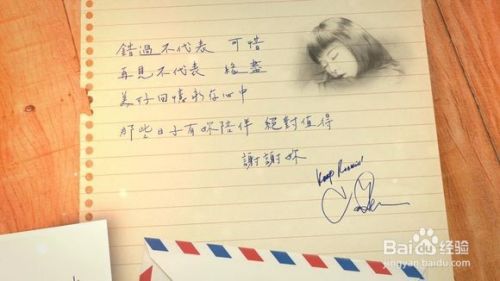 錯過不代表 可惜
再見不代表 緣盡
美好回憶永存心中
那些日子有妳陪伴 絕對值得
謝謝妳
Keep
Bai 经验
jingyan.baidu.com